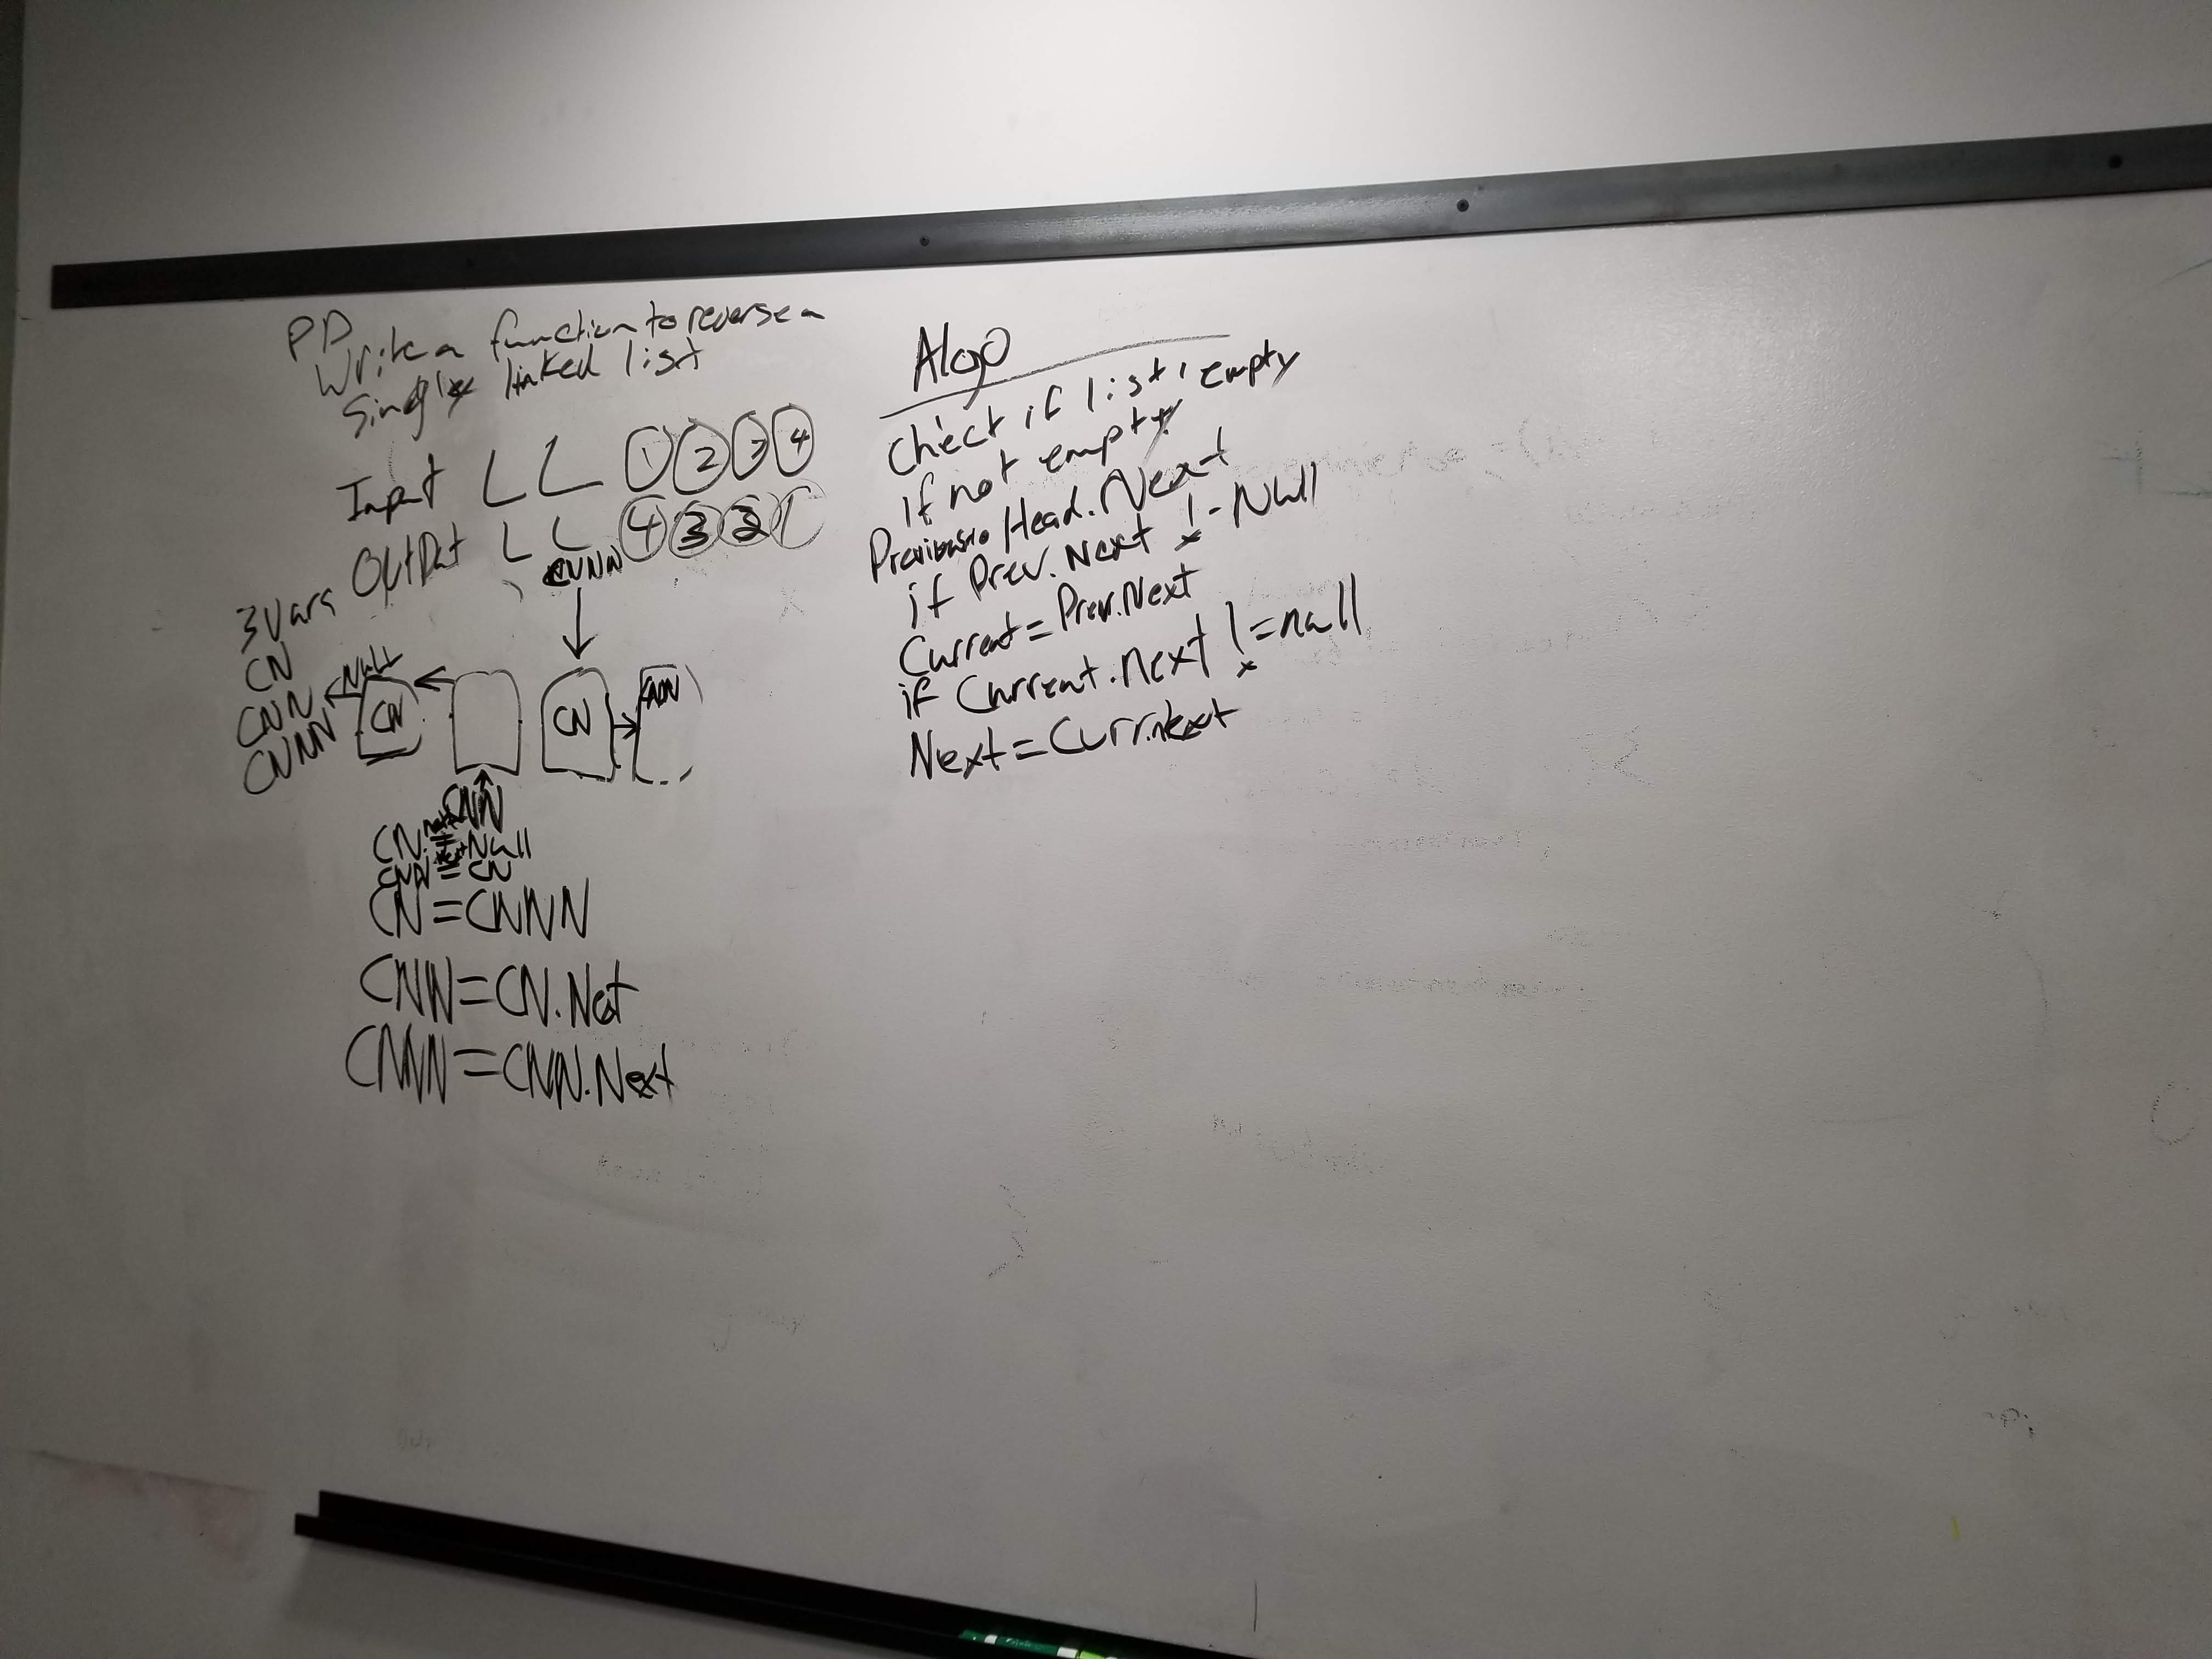 PD
Write a function to reverse a
Singly linked list
Input LL 1 2 3 4
OutPut LL 4 3 2 1
3 Vars
CN
CNN
CNNN
CNNN
Null
CN
CN
CNN
CN.next = Null
CNN.next = CN
CN = CNNN
CNN = CN.Next
CNNN = CNN.Next
Algo
Check if list empty
If not empty
Head.Next
if Prev.Next != Null
Current = Prev.Next
if Current.next != null
Next = Curr.next